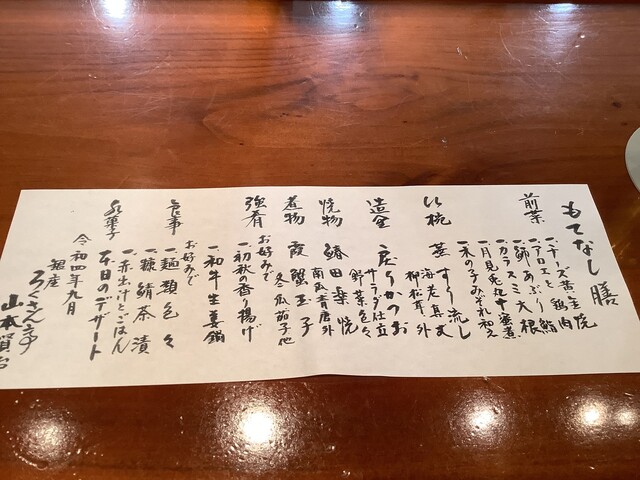 もてなし膳
前菜
一、チーズ黄金焼
一、アロエと鶏肉
一、鯛あぶり鮨
一、カラスミ大根
一、月見兎丸十蜜煮
一、木の子みぞれ和え
吸椀
蕪すり流し
海老真丈
柳松茸、外
造里
戻りかつお
サラダ仕立
野菜色々
焼物
鰆田楽焼
南瓜、青唐外
煮物
霞蟹玉子
冬瓜、茄子他
強肴
お好みで
一、初秋の香り揚げ
一、和牛生姜鍋
食事
お好みで
一、麺類色々
一、糠鯖茶漬
一、赤出汁とごはん
水菓子
本日のデザート
令和四年九月
銀座
ろくさん亭
山本賢治